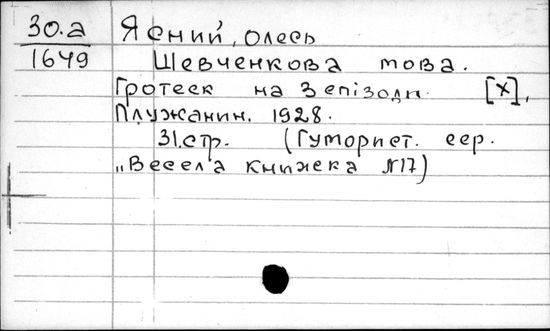 30.а Ясний, Олесь
1649 Шевченкова мова.
Гротеск на 3 епізоди. [Х],
Плужанин. 1928.
31.стр. (Гуморист. сер.
„Весела книжека №17)